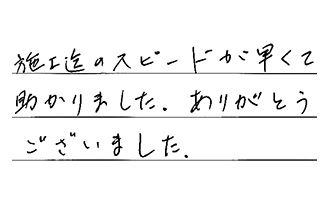 施工迄のスピードが早くて
助かりました. ありがとう
ございました.